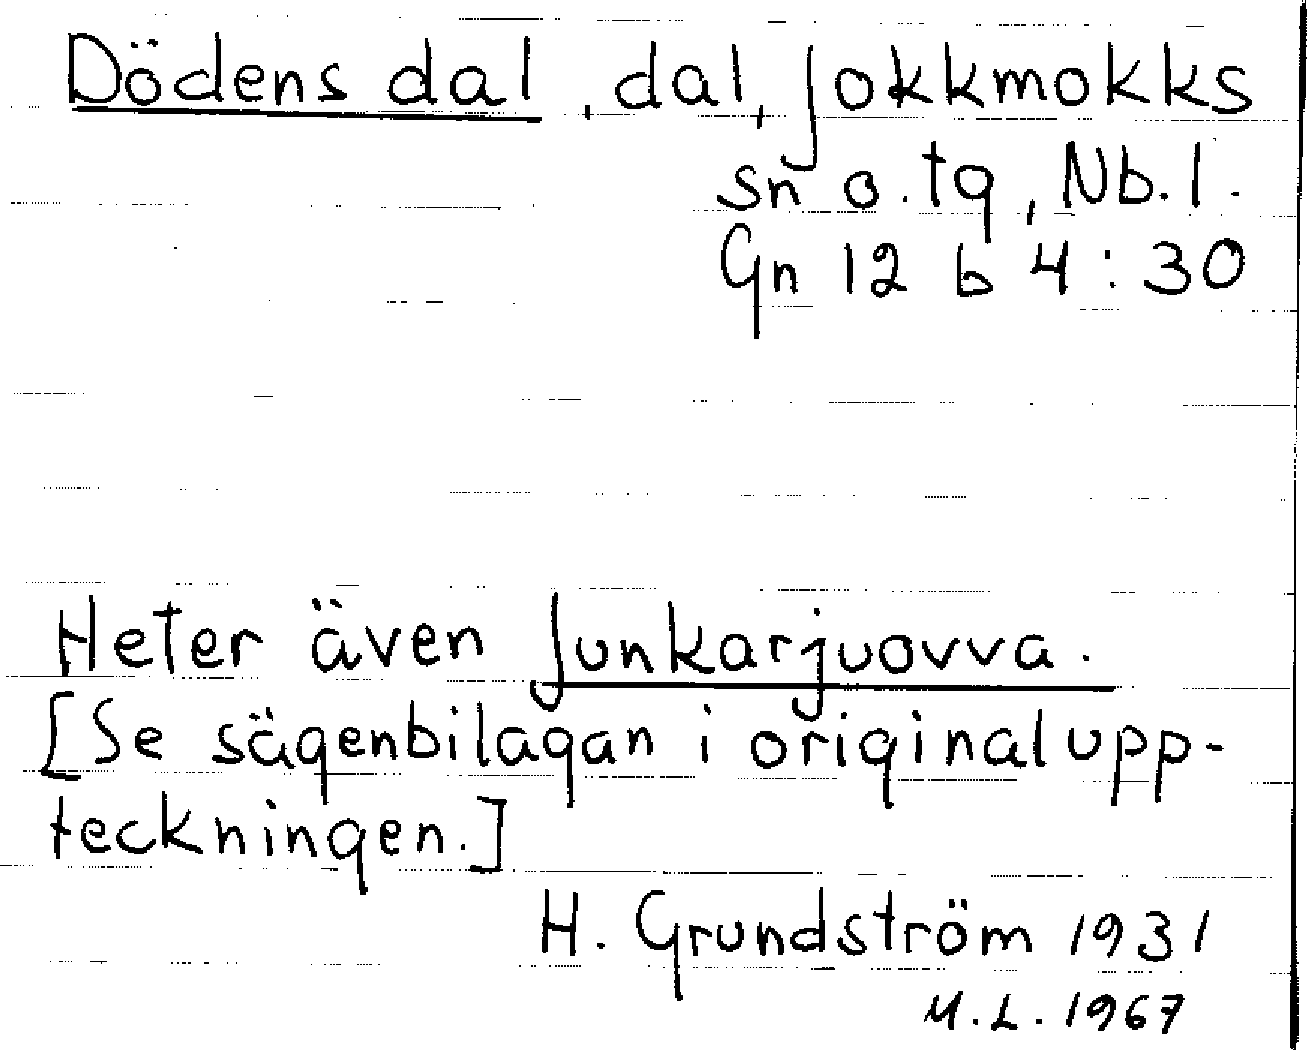 Dödens dal, dal, Jokkmokks
sn o. tg, Nb. l.
Gn 12 b 4:30
Heter även Junkarjuovva.
[Se sägenbilagan i originalupp-
teckningen.]
H. Grundström 1931
M.L. 1967